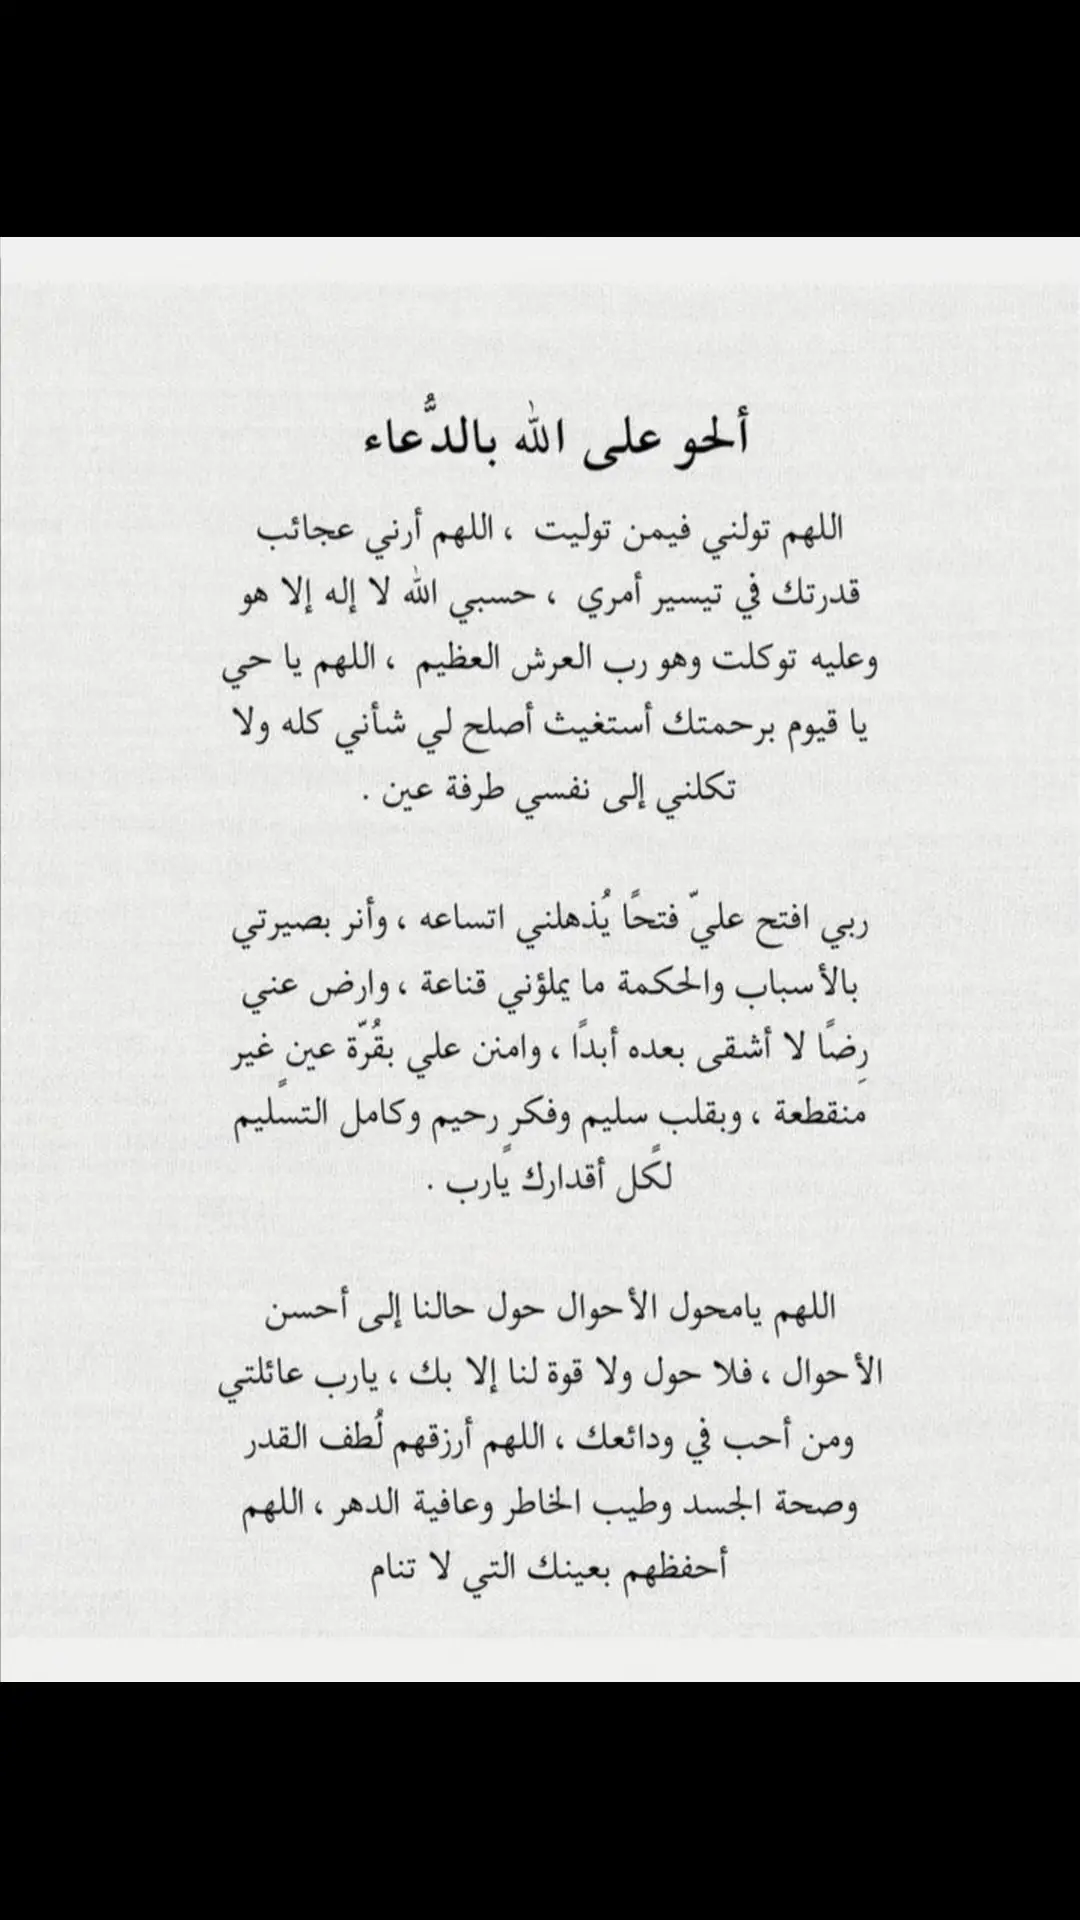 ألحو على الله بالدُّعاء
اللهم تولني فيمن توليت ، اللهم أرني عجائب
قدرتك في تيسير أمري ، حسبي الله لا إله إلا هو
وعليه توكلت وهو رب العرش العظيم ، اللهم يا حي
يا قيوم برحمتك أستغيث أصلح لي شأني كله ولا
تكلني إلى نفسي طرفة عين .
ربي افتح عليّ فتحًا يُذهلني اتساعه ، وأنر بصيرتي
بالأسباب والحكمة ما يملؤني قناعة ، وارض عني
رِضًا لا أشقى بعده أبدًا ، وامنن علي بقُرّة عينٍ غير
منقطعة ، وبقلب سليم وفكرٍ رحيم وكامل التسليم
لكل أقدارك يارب .
اللهم يامحول الأحوال حول حالنا إلى أحسن
الأحوال ، فلا حول ولا قوة لنا إلا بك ، يارب عائلتي
ومن أحب في ودائعك ، اللهم أرزقهم لُطف القدر
وصحة الجسد وطيب الخاطر وعافية الدهر ، اللهم
أحفظهم بعينك التي لا تنام